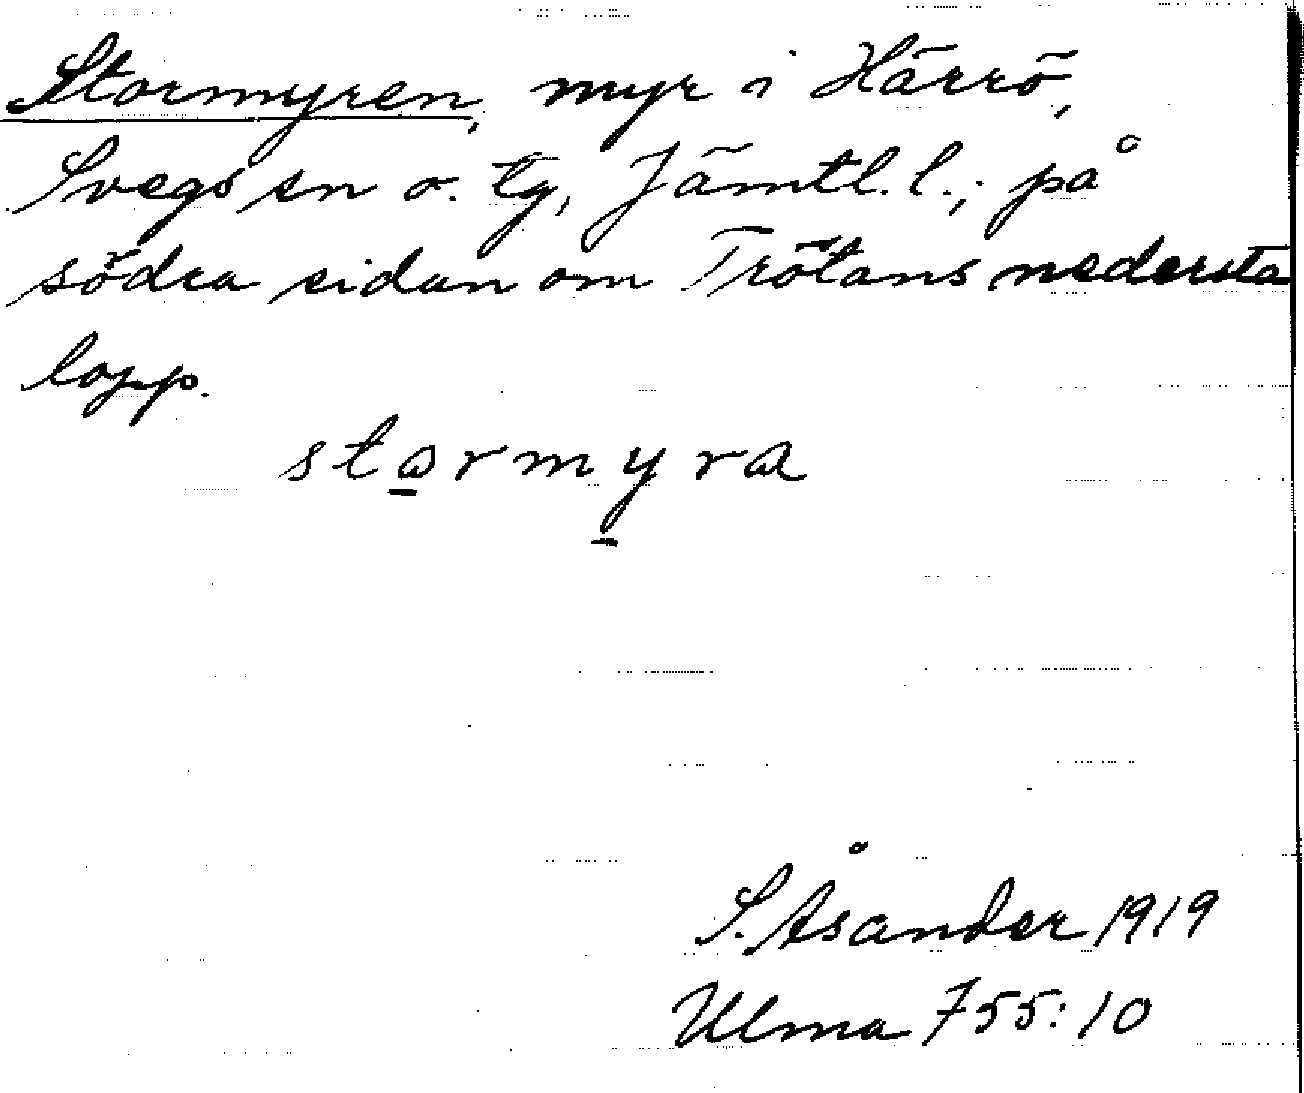 Stormyren, myr i Härrö,
Svegs sn o. tg, Jämtl. l.; på
södra sidan om Trötans nedersta
lopp.
stormyra
S. Åsander 1919
Ulma 755:10